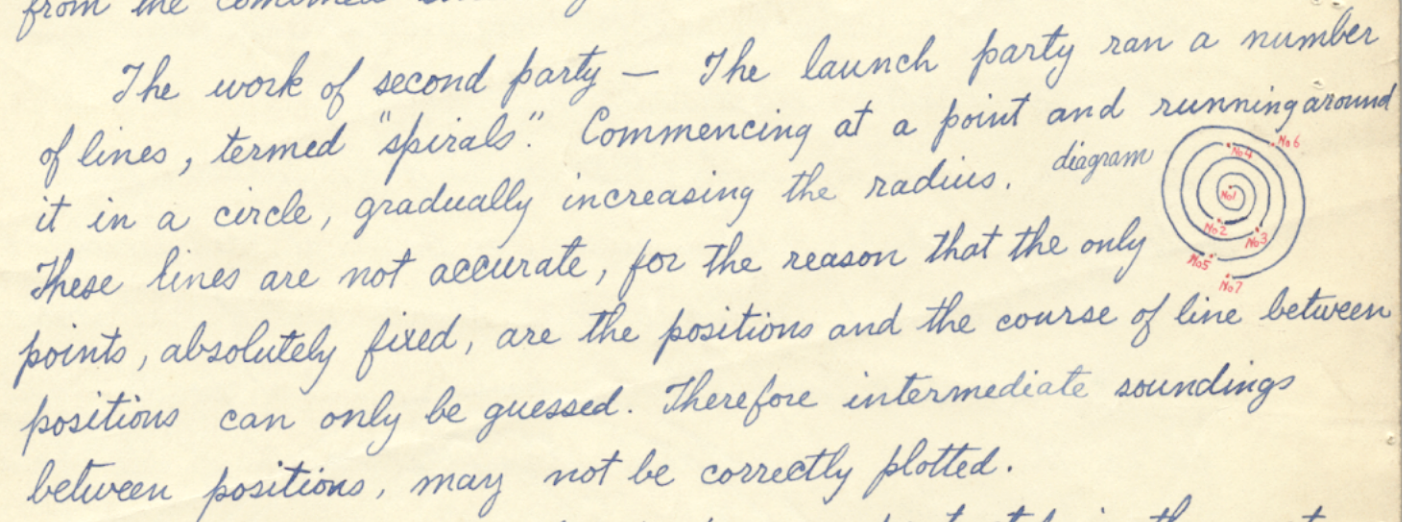 from the combined
The work of second party — The launch party ran a number
of lines, termed "spirals." Commencing at a point and running around
it in a circle, gradually increasing the radius. diagram
No 6
No 4
No 1
No 2
No 3
No 5
No 7
These lines are not accurate, for the reason that the only
points, absolutely fixed, are the positions and the course of line between
positions can only be guessed. Therefore intermediate soundings
between positions, may not be correctly plotted.